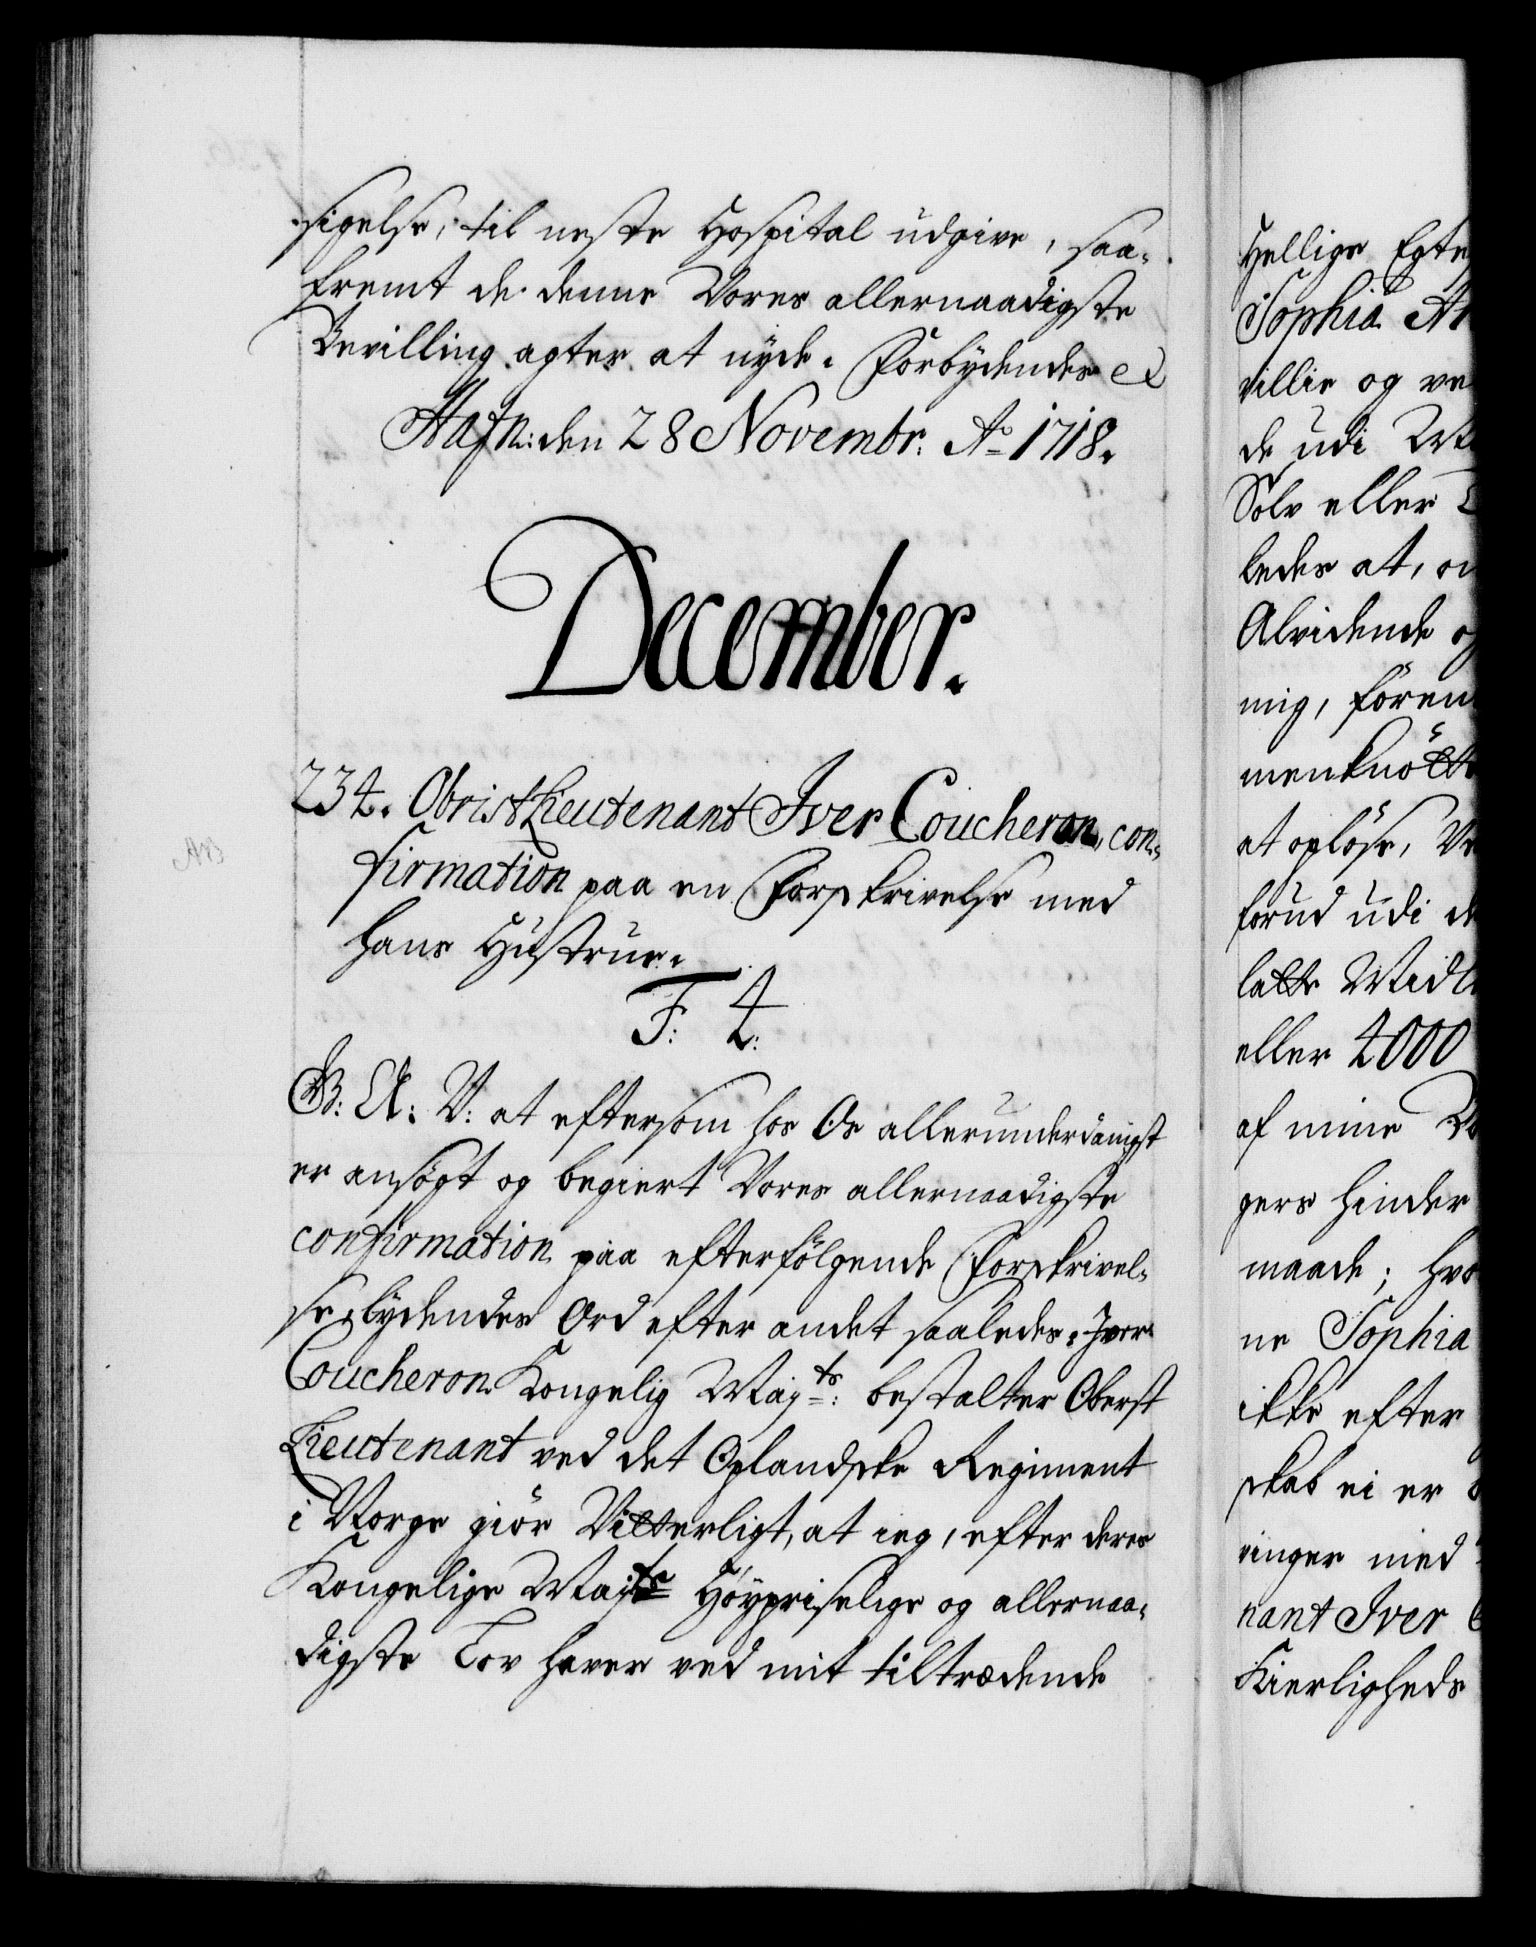 sigelse, til neste Hospital udgive, saa-
fremt de denne Vores allernaadigste
Bevilling agter at nyde. Forbydendes &
Hafn: den 28 Novembr: A° 1718.
December.
234. ObristLieutenant Iver Coucheron, con-
firmation paa en Forskrivelse med
hans Hustrue.
F: 4:
G: A: V: at eftersom hos Os allerunderdanigst
er ansøgt og begiert Vores allernaadigste
confirmation paa efterfølgende Forskrivel-
se, lydendes Ord efter andet saaledes: Iver
Coucheron Kongelig Mayts: bestalter Oberst
Lieutenant ved det Oplandske Regiment
i Norge giør Vitterligt, at ieg, efter deres
Kongelige Mayts Høypriselige og allernaa-
digste Lov haver ved mit tiltrædende
Hellige Egte
Sophia
villie og ve
de udi
Sølv eller
ledes at, o
Alvidende o
mig, foren
menknøtte
at opløse, V
forud udi d
latte Midl
eller 4000
af mine
gers hinder
maade; hvo
ne Sophia
ikke efter
skab ei er
ringer med
nant Iver C
Kierligheds